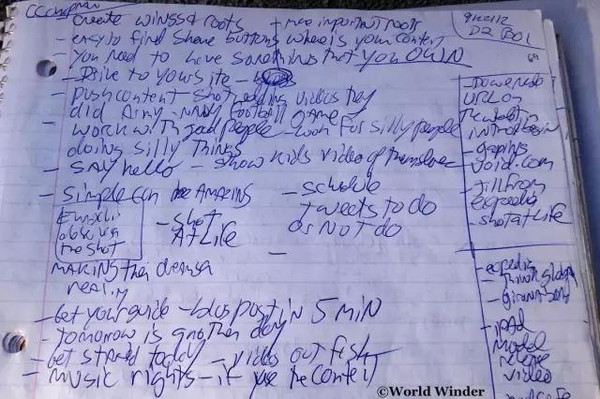 CC Chapman
- create wings & roots - more important roots
- easy to find share buttons where is your content
- You need to have something that you OWN
- Drive to your site -
- push content - shot wedding videos they
did Army - Navy Football game
- work with good people - work for silly people
doing silly things
- SAY hello - show kids video of themselves
- simple can be AMAZING
- schedule
tweets to do
or not do
- Shot
AT Life
the shot
-
MAKING their dreams a
reality
- Get your guide - blog post in 5 min
- tomorrow is another day
- Get started today - videos out first
- music rights - if use the content
9/22/12
D2 BO1
69
URL on
- gapings
void.com
- Jill from
expedia
- shot at life
expedia
- think global
- iPAd
model
release
video
©World Winder